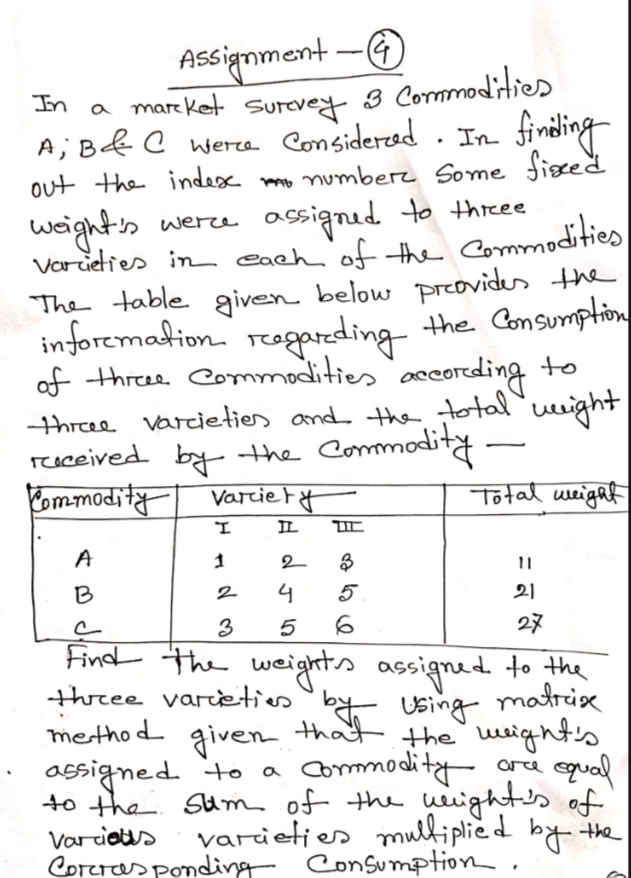 Assignment — 4
In a market survey 3 Commodities
A, B & C were Considered. In finding
out the index number some fixed
weight's were assigned to three
varieties in each of the Commodities
The table given below provides the
information regarding the Consumption
of three Commodities according to
three varieties and the total weight
received by the Commodity —
Commodity Variety Total weight
I II III
A 1 2 3 11
B 2 4 5 21
C 3 5 6 27
Find the weights assigned to the
three varieties by using matrix
method given that the weight's
assigned to a Commodity are equal
to the sum of the weight's of
various varieties multiplied by the
Corresponding Consumption.